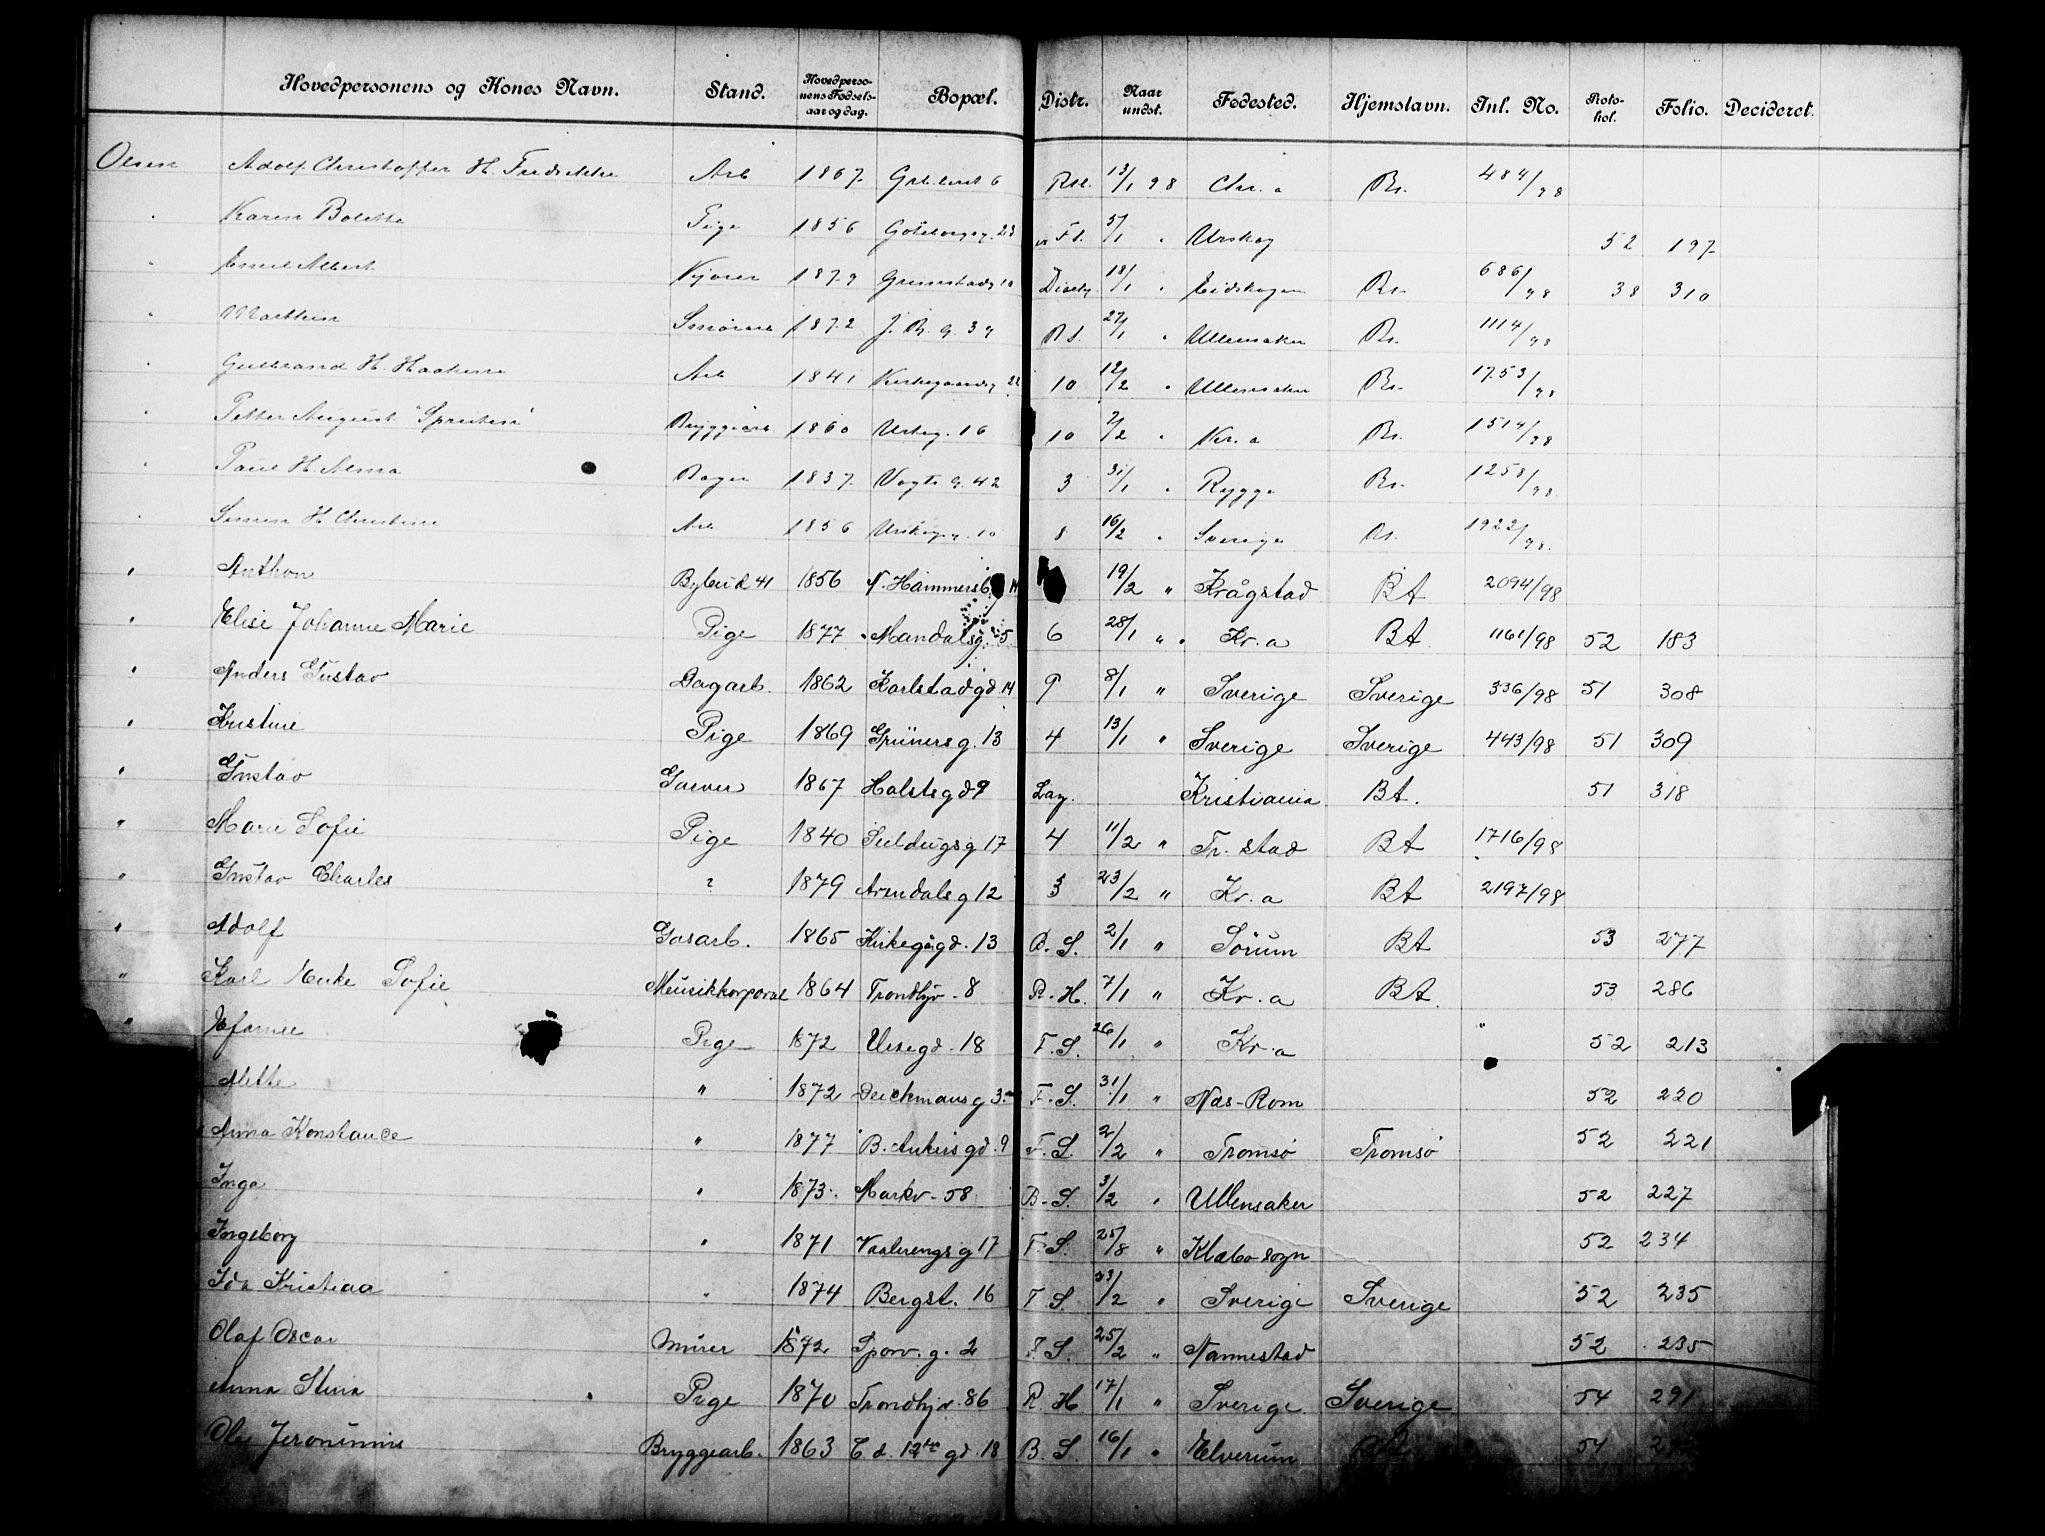 Hovedpersonens og Kones Navn. Stand. Hovedpersonens Fødselsaar og dag. Bopæl. Distr. Naar undst. Fødested. Hjemstavn. Inl. No. Protokol. Folio. Decideret.
Olsen Adolf Christoffer H. Fredrikke Arb 1867 6 13/1 98 Chr.a Br. 484/98
" Karen Bolette Pige 1856 Göteborgg. 23 F S. 5/1 " Urskog 52 197
" Emil Albert Kjører 1879 Grimstadg 10 18/1 " Eidskogen Br. 686/98 38 310
" Marthin 1872 J. B. g. 39 R S. 27/1 " Ullensaker Br. 1114/98
" Gulbrand H. Arb 1841 Kirkegaardsg 22 10 12/2 " Ullensaker Br. 1753/98
" Petter August Bryggearb 1860 Urteg. 16 10 7/2 " Kr.a Br. 1514/98
" Paul H. Alma Bager 1837 Vogts g. 42 3 31/1 " Rygge Br. 1258/98
" Simen H. Christine Arb 1856 Urskogg. 10 8 16/2 " Sverige Br. 1922/98
" Anthon Bybud 41 1856 N. Hammersb. 14 19/2 " Krågstad BA 2094/98
" Elise Johanne Marie Pige 1877 Mandalsg. 5 6 28/1 " Kr.a BA 1161/98 52 183
" Anders Gustav Dagarb. 1862 Karlstadgd 14 9 8/1 " Sverige Sverige 336/98 51 308
" Kristine Pige 1869 Grüners g. 13 4 13/1 " Sverige Sverige 443/98 51 309
" Gustav Garver 1867 Holsts gd 9 Lay. Kristiania BA. 51 318
" Marie Sofie Pige 1840 Seildugsg 17 4 11/2 " Fr. stad BA 1716/98
" Gustav Charles ? 1879 Arendals g 12 3 23/2 " Kr.a BA 2197/98
" Adolf Gasarb. 1865 Kirkegågd. 13 B. S. 2/1 " Sörum BA 53 277
" Karl Sofie Musikkorporal 1864 Trondhjv. 8 R. H. 7/1 " Kr.a BA 53 286
" Pige 1872 Urtegd. 18 F. S. 26/1 " Kr.a " 52 213
Mette " 1872 Deichmans g 3 F. S. 31/1 " Næs-Rom 52 220
Anna Konstance " 1877 B. Ankers gd. 9 F. S. 2/2 " Tromsø Tromsø 52 221
Inga " 1873 Markv. 58 B. S. 3/2 " Ullensaker 52 227
Ingeborg " 1871 Vaalerengs g 17 F. S. 25/8 " Klæbo sogn 52 234
Ida Kristina " 1874 Bergst. 16 F S. 23/2 " Sverige Sverige 52 235
Olaf Oscar Murer 1872 Sporv. g. 2 F. S. 25/2 " Nannestad 52 235
Anna Stina Pige 1870 Trondhjv. 86 R H 17/1 " Sverige Sverige 54 291
Ole Jeronimus Bryggearb. 1863 C. d. 12te gd. 18 B. S. 16/1 " Elverum 54